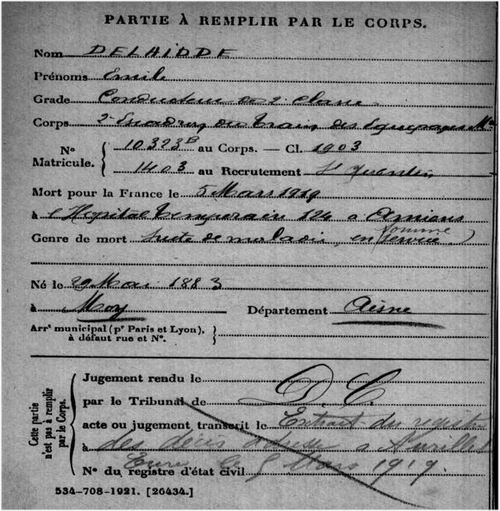 PARTIE À REMPLIR PAR LE CORPS.
Nom DELHIDDE
Prénoms Emile
Grade Conducteur de 2e Classe
Corps 2e Escadron du Train des Equipages Mre
Nº 10323B au Corps. — Cl. 1903
Matricule. 1403 au Recrutement St Quentin
Mort pour la France le 5 Mars 1919
à l'Hôpital temporaire 124 à Amiens
Genre de mort Suite de maladie en service
Somme
Né le 29 Mai 1883
à Moy Département Aisne
Arrt municipal (pr Paris et Lyon),
à défaut rue et Nº.
Cette partie
n'est pas à remplir
par le Corps.
Jugement rendu le
par le Tribunal de D.C.
acte ou jugement transcrit le Extrait du registre
à des décès adressé à
Eure le 5 Mars 1919.
Nº du registre d'état civil
534-708-1921. [26434.]